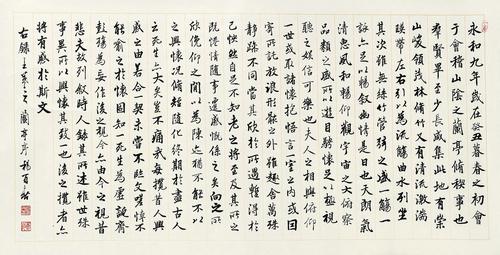 永和九年歲在癸丑暮春之初會
于會稽山陰之蘭亭脩稧事也
羣賢畢至少長咸集此地有崇
山峻領茂林脩竹又有清流激湍
暎帶左右引以為流觴曲水列坐
其次雖無絲竹管弦之盛一觴一
詠亦足以暢敘幽情是日也天朗氣
清惠風和暢仰觀宇宙之大俯察
品類之盛所以遊目騁懷足以極視
聽之娛信可樂也夫人之相與俯仰
一世或取諸懷抱悟言一室之內或因
寄所託放浪形骸之外雖趣舍萬殊
靜躁不同當其欣於所遇暫得於
己怏然自足不知老之將至及其所之
既惓情隨事遷感慨係之矣向之所
欣俛仰之間以為陳迹猶不能不以
之興懷況脩短隨化終期於盡古人
云死生亦大矣豈不痛哉每攬昔人興
感之由若合一契未嘗不臨文嗟悼不
能喻之於懷固知一死生為虛誕齊
彭殤為妄作後之視今亦由今之視昔
悲夫故列敘時人錄其所述雖世殊
事異所以興懷其致一也後之攬者亦
將有感於斯文
右錄王羲之蘭亭序